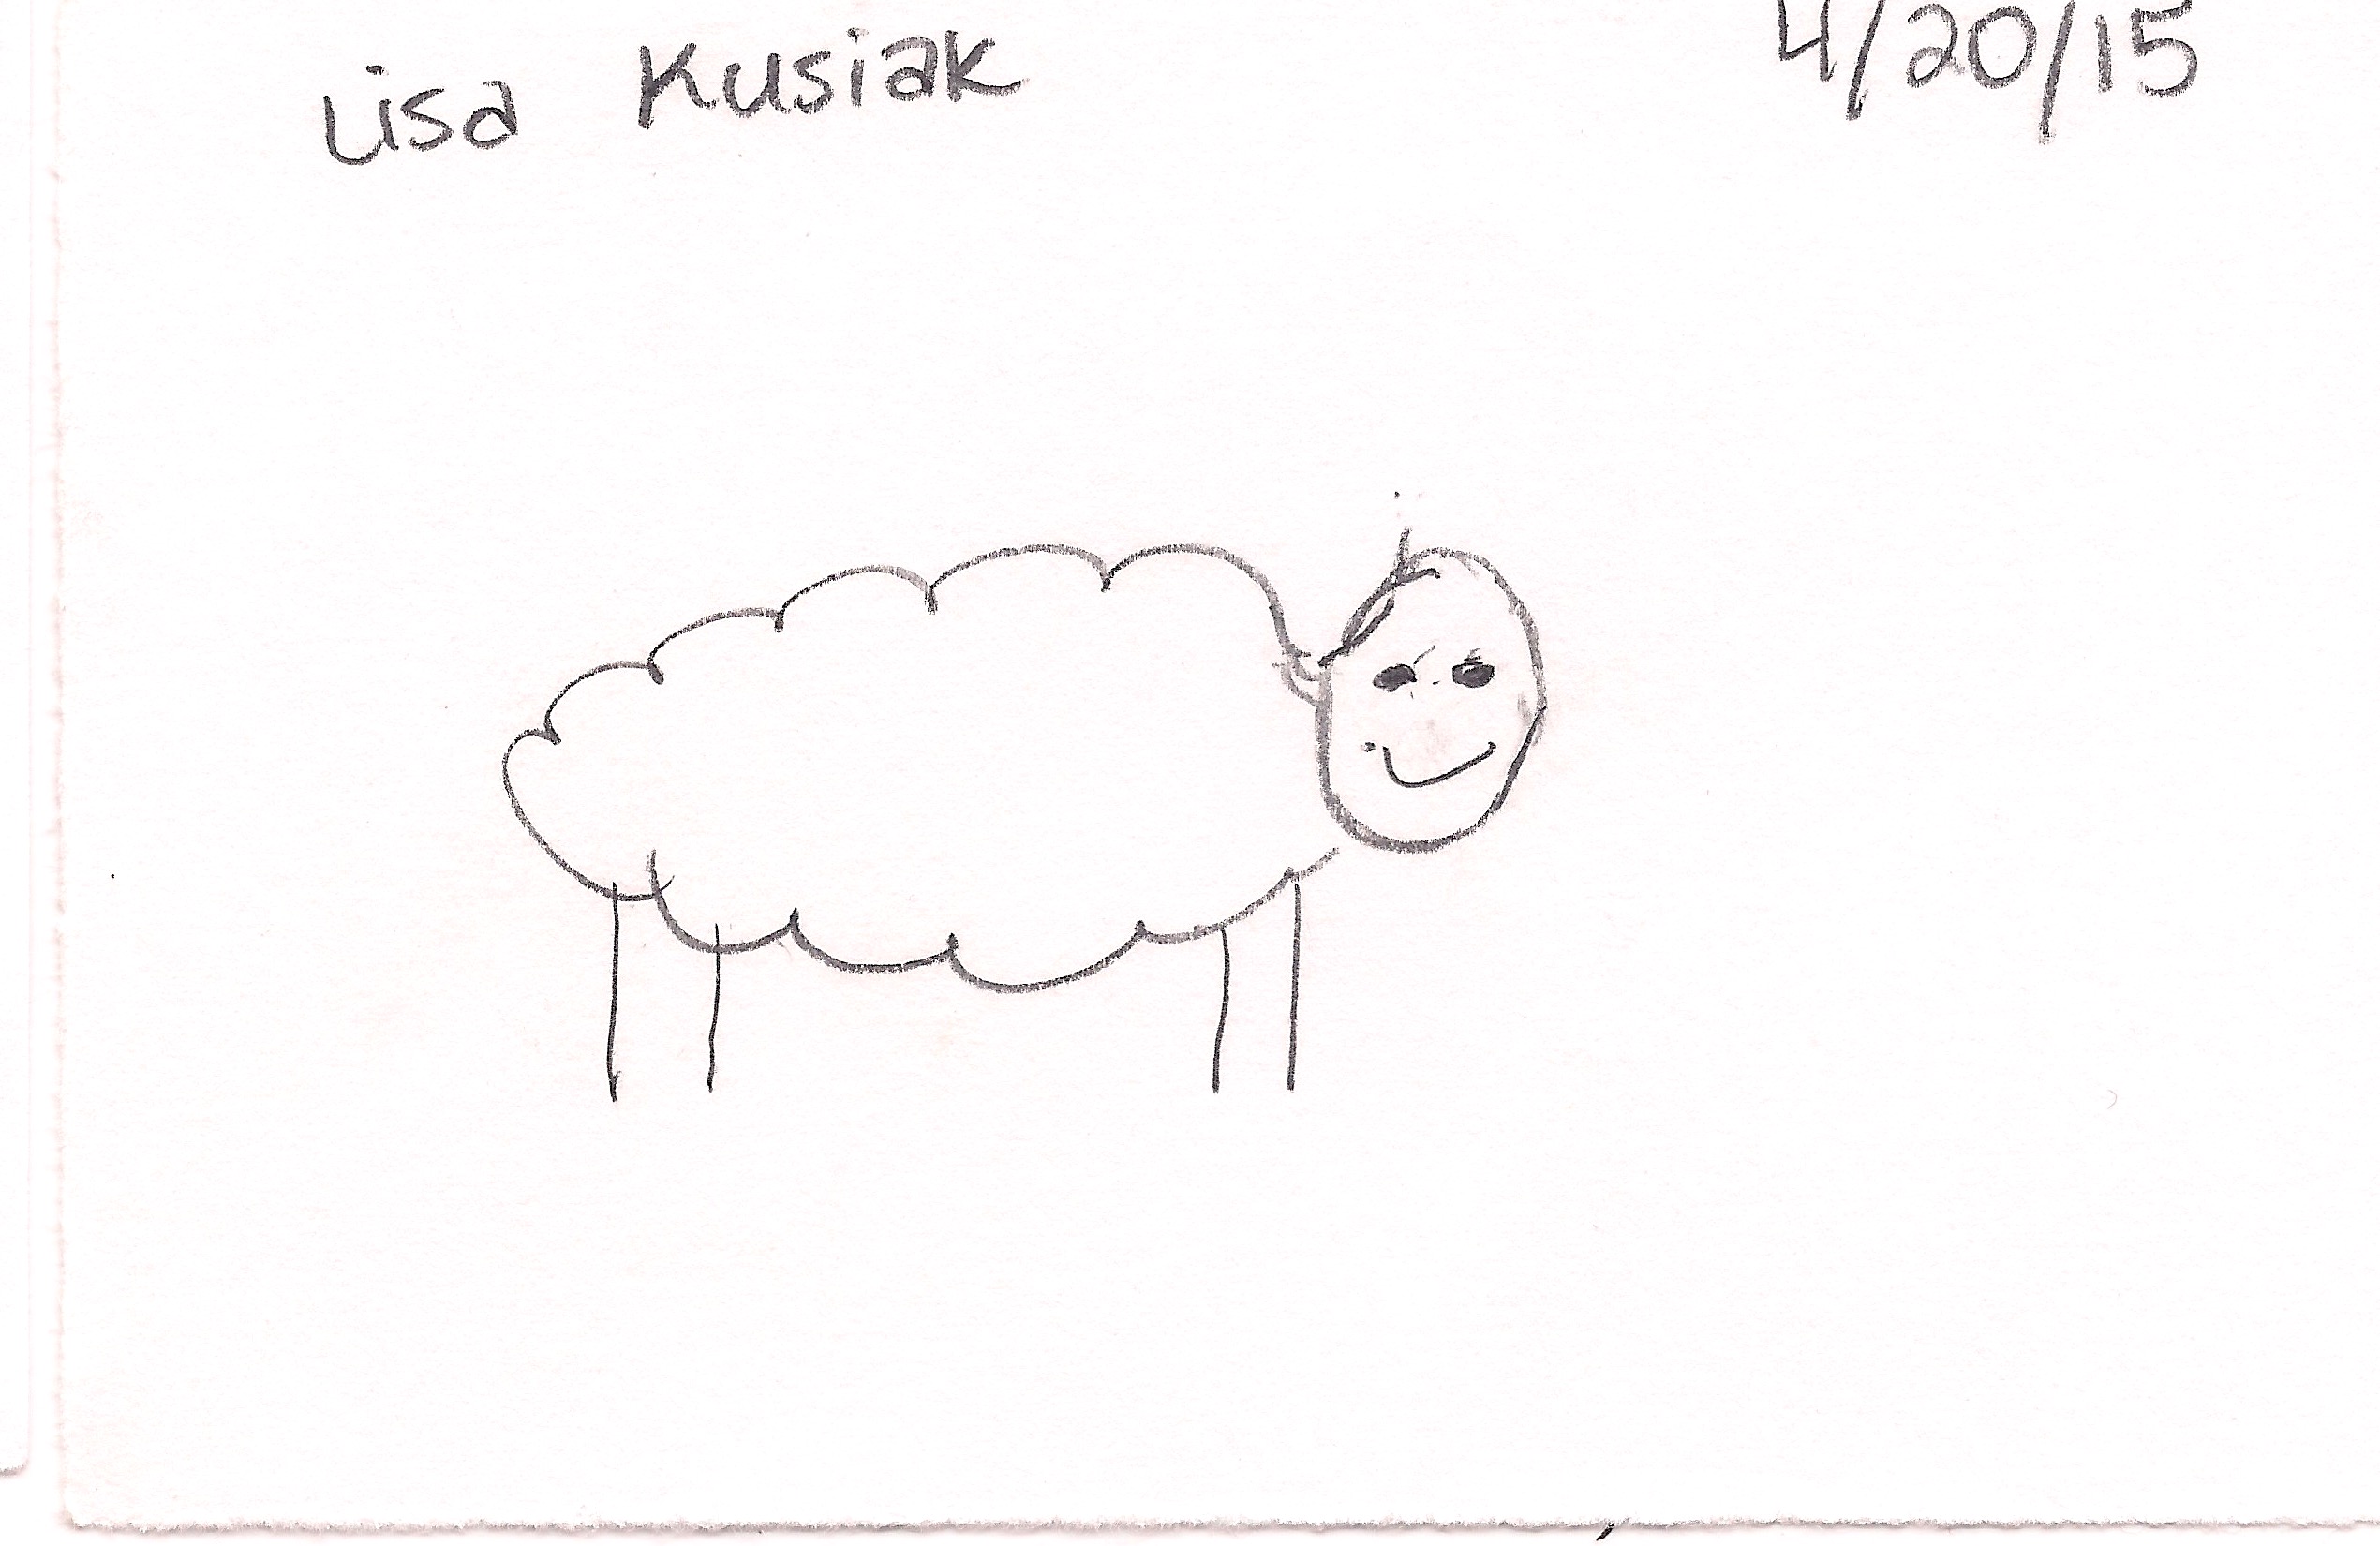 Lisa Kusiak 4/20/15